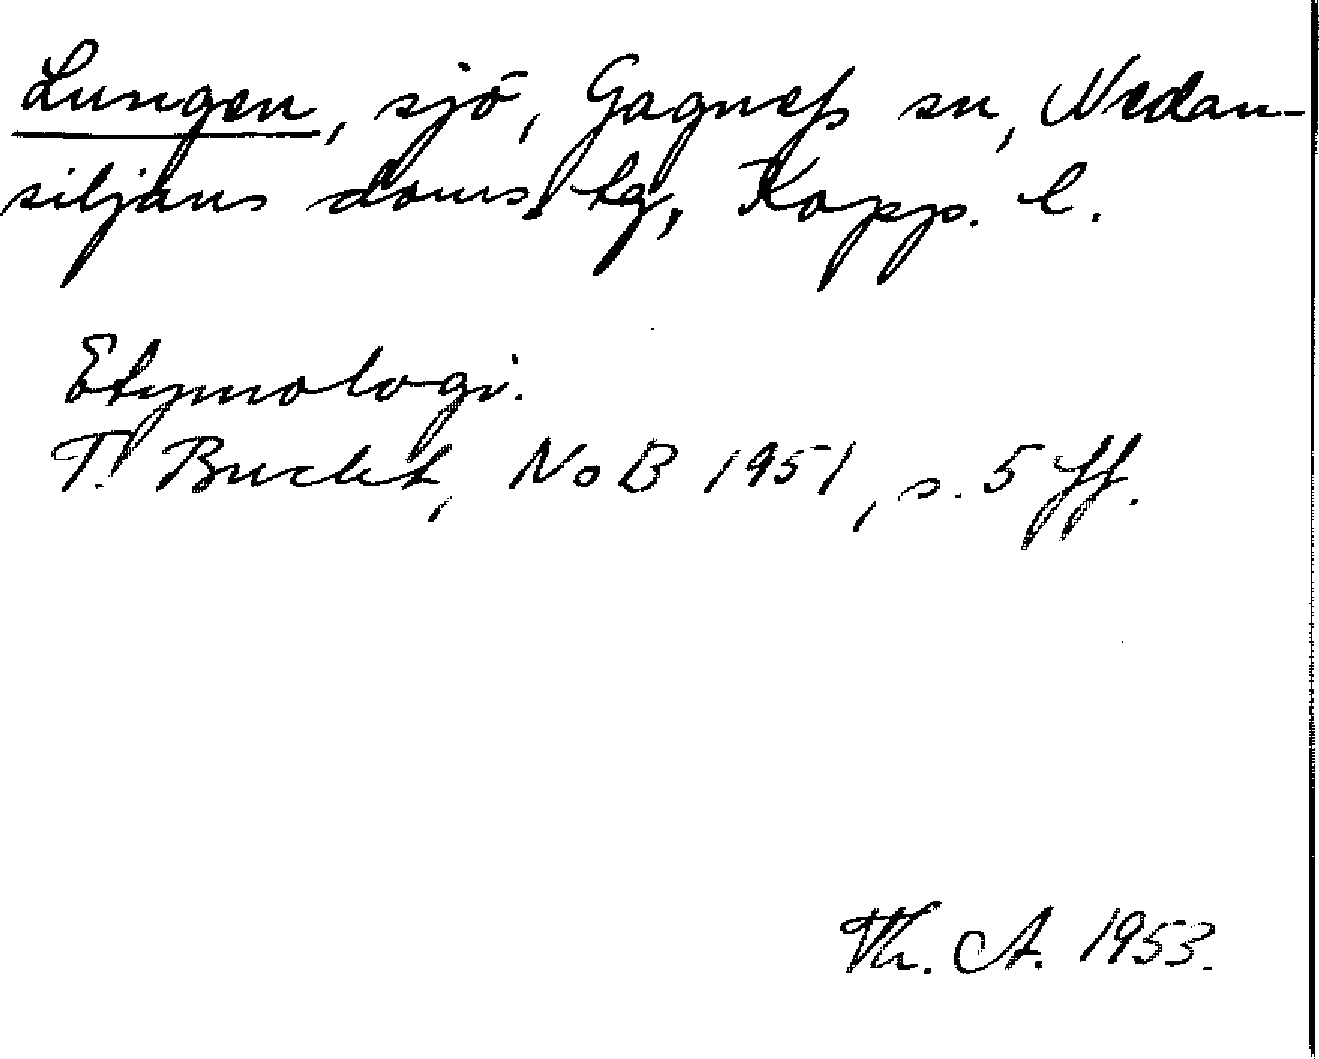 Lungen, sjö, Gagnefs sn, Nedan-
siljans doms. tg, Kopp. l.
Etymologi.
T. Bucht, NoB 1951, s. 5 ff.
Th. A. 1953.